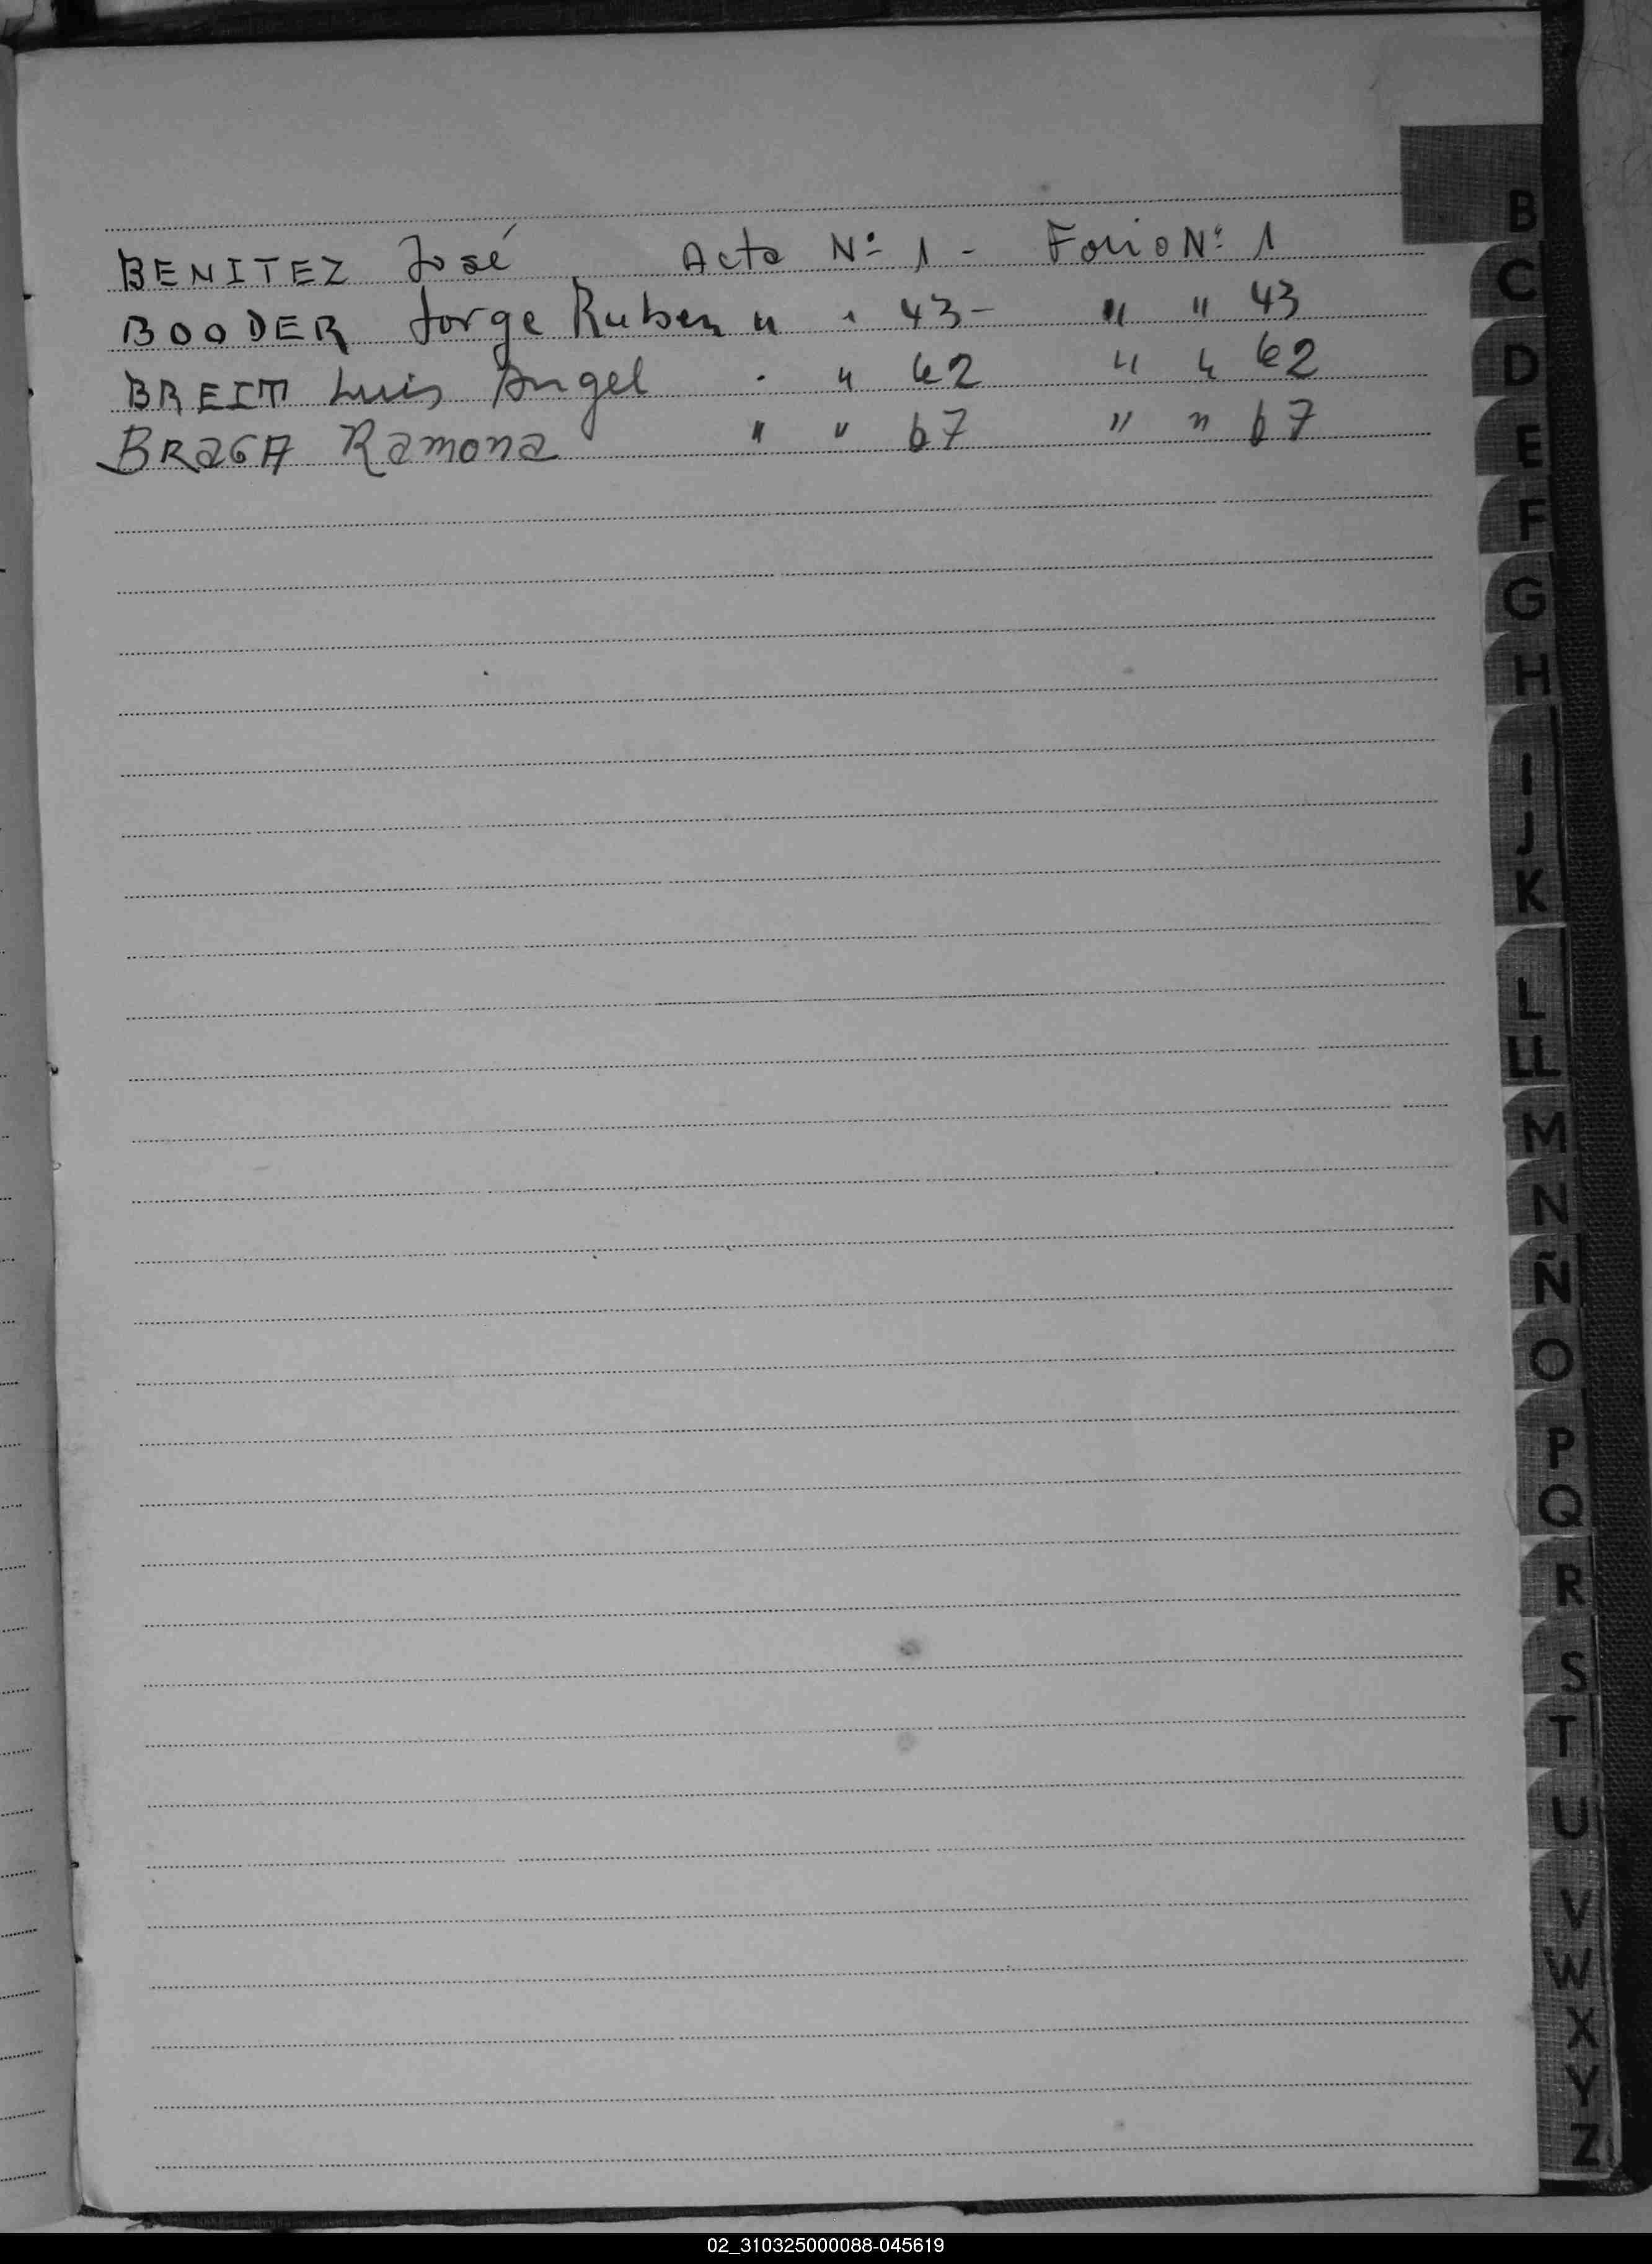 BENITEZ José Acta Nº 1 - Folio Nº 1
BOODER Jorge Ruben " " 43 - " " 43
BREIT Luis Angel " " 62 " " 62
BRAGA Ramona " " 67 " " 67
B
C
D
E
F
G
H
I
J
K
L
LL
M
N
Ñ
O
P
Q
R
S
T
U
V
W
X
Y
Z
02_310325000088-045619